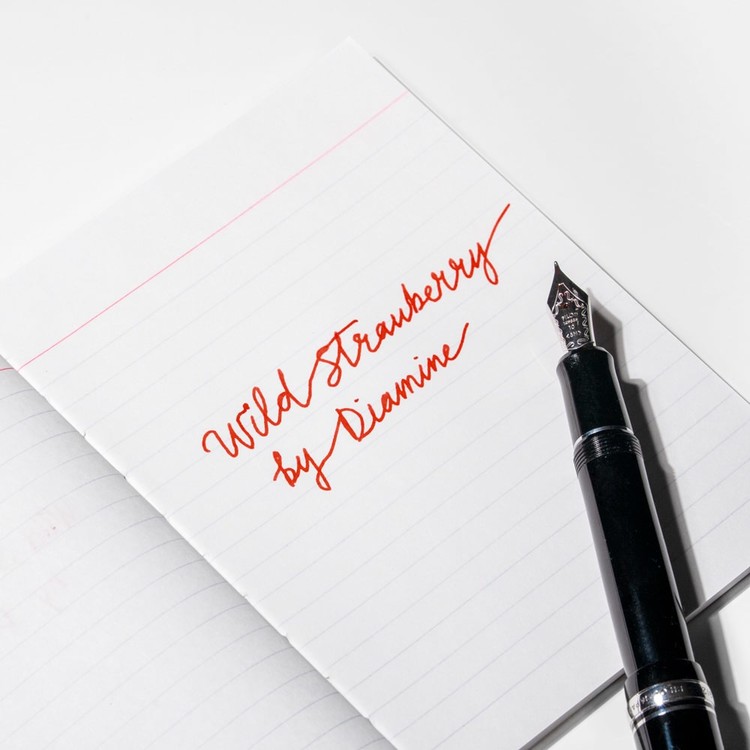 Wild Strawberry
by Diamine